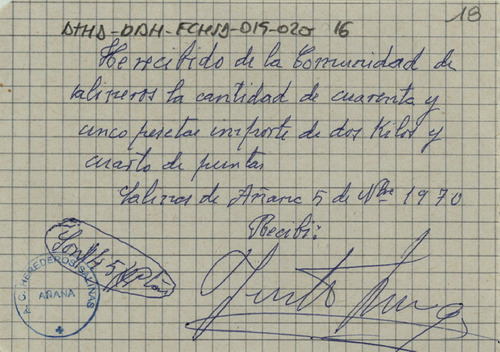 18
ATHA-DAH-FCHSA-015-020 16
He recibido de la Comunidad de
salineros la cantidad de cuarenta y
cinco pesetas importe de dos Kilos y
cuarto de puntas
Salinas de Añana 5 de Nbre 1970
Recibi:
Son # 45 # ptas
C. HEREDEROS SALINAS
AÑANA
Justo